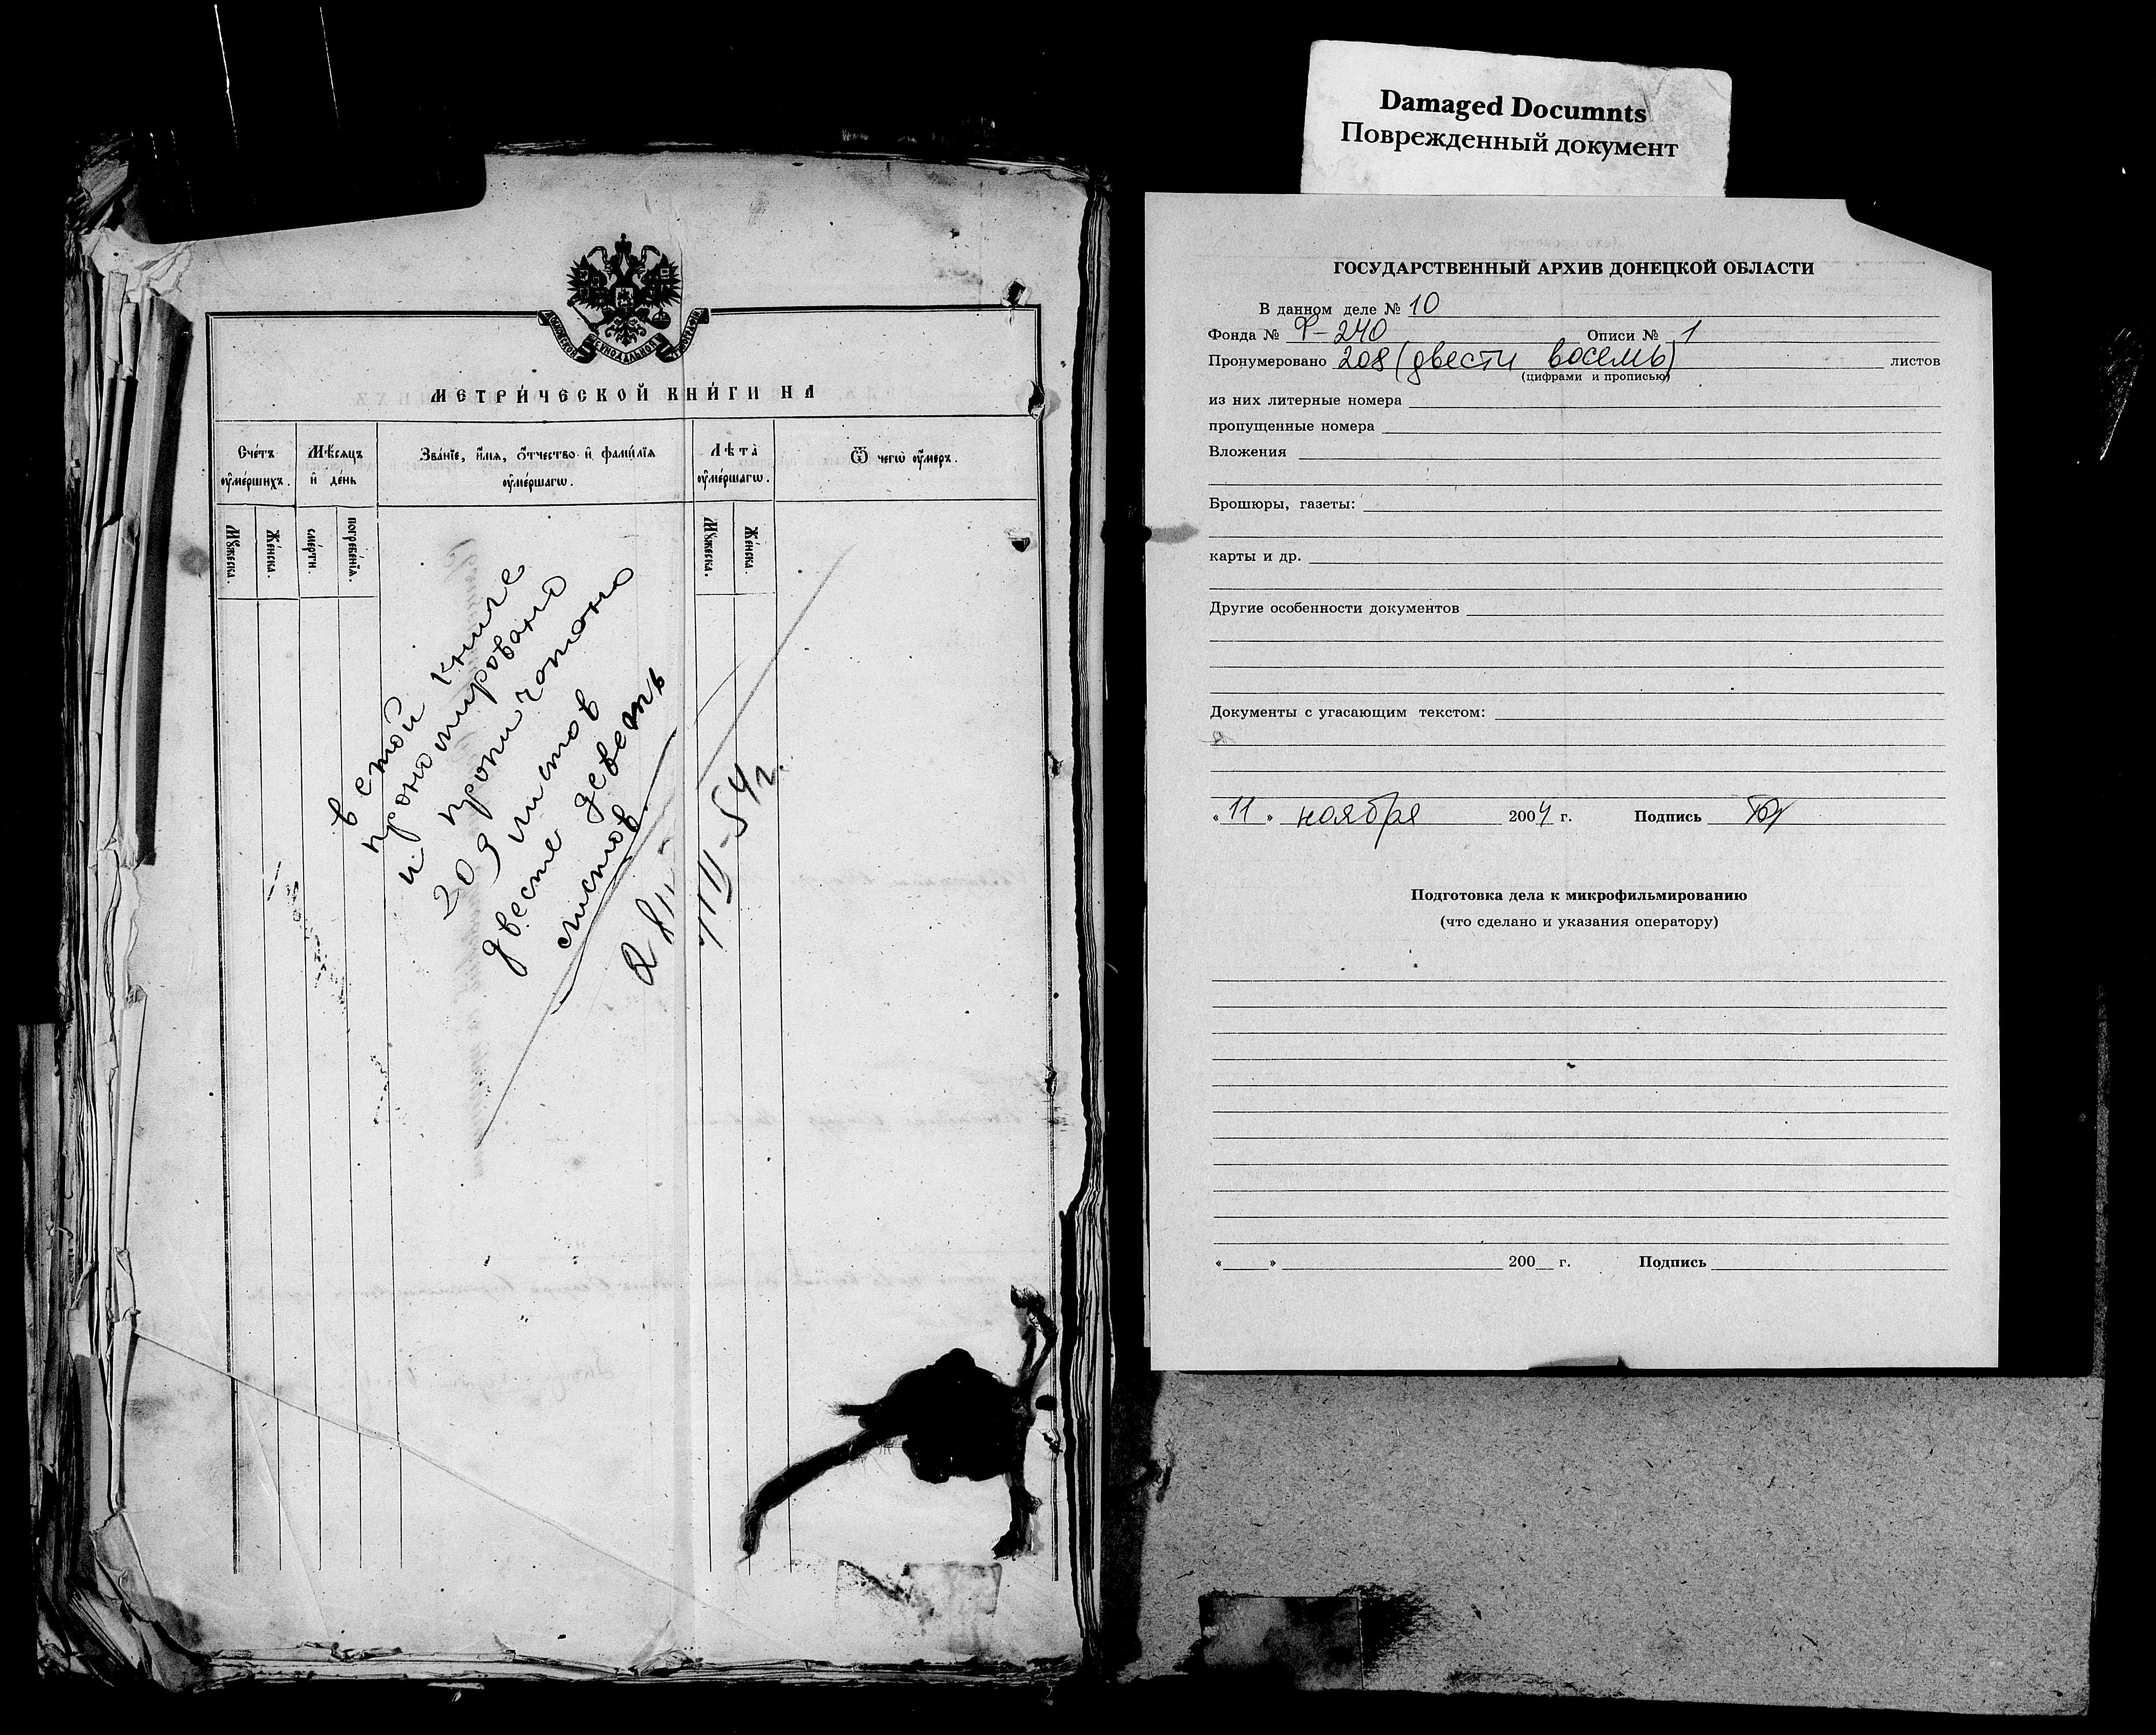 Damaged Documnts
Поврежденный документ
МОСКОВСКОЙ СѴНОДАЛЬНОЙ ТѴПОГРАФІИ
МЕТРИ́ЧЕСКОЙ КНИ́ГИ НА
Сче́тъ ᲂу҆ме́ршихъ.
Мѣ́сяцъ и҆ день
Зва́нїе, и҆́мя, ѻ҆́тчество и҆ фами́лїя ᲂу҆ме́ршагѡ.
Лѣта̀ ᲂу҆ме́ршагѡ.
Ѿ чегѡ̀ ᲂу҆́меръ.
Мꙋ́жеска.
Же́нска.
сме́рти.
погребе́нїѧ.
Мꙋ́жеска.
Же́нска.
в етой книге
пронomмировано
и пронумеровано
209 листов
двесте девять
листов
54 г.
ГОСУДАРСТВЕННЫЙ АРХИВ ДОНЕЦКОЙ ОБЛАСТИ
В данном деле № 10
Фонда № Ф-240 Описи № 1
Пронумеровано 208 (двести восемь) листов
(цифрами и прописью)
из них литерные номера
пропущенные номера
Вложения
Брошюры, газеты:
карты и др.
Другие особенности документов
Документы с угасающим текстом:
« 11 » ноября 2004 г. Подпись
Подготовка дела к микрофильмированию
(что сделано и указания оператору)
« » 200 г. Подпись